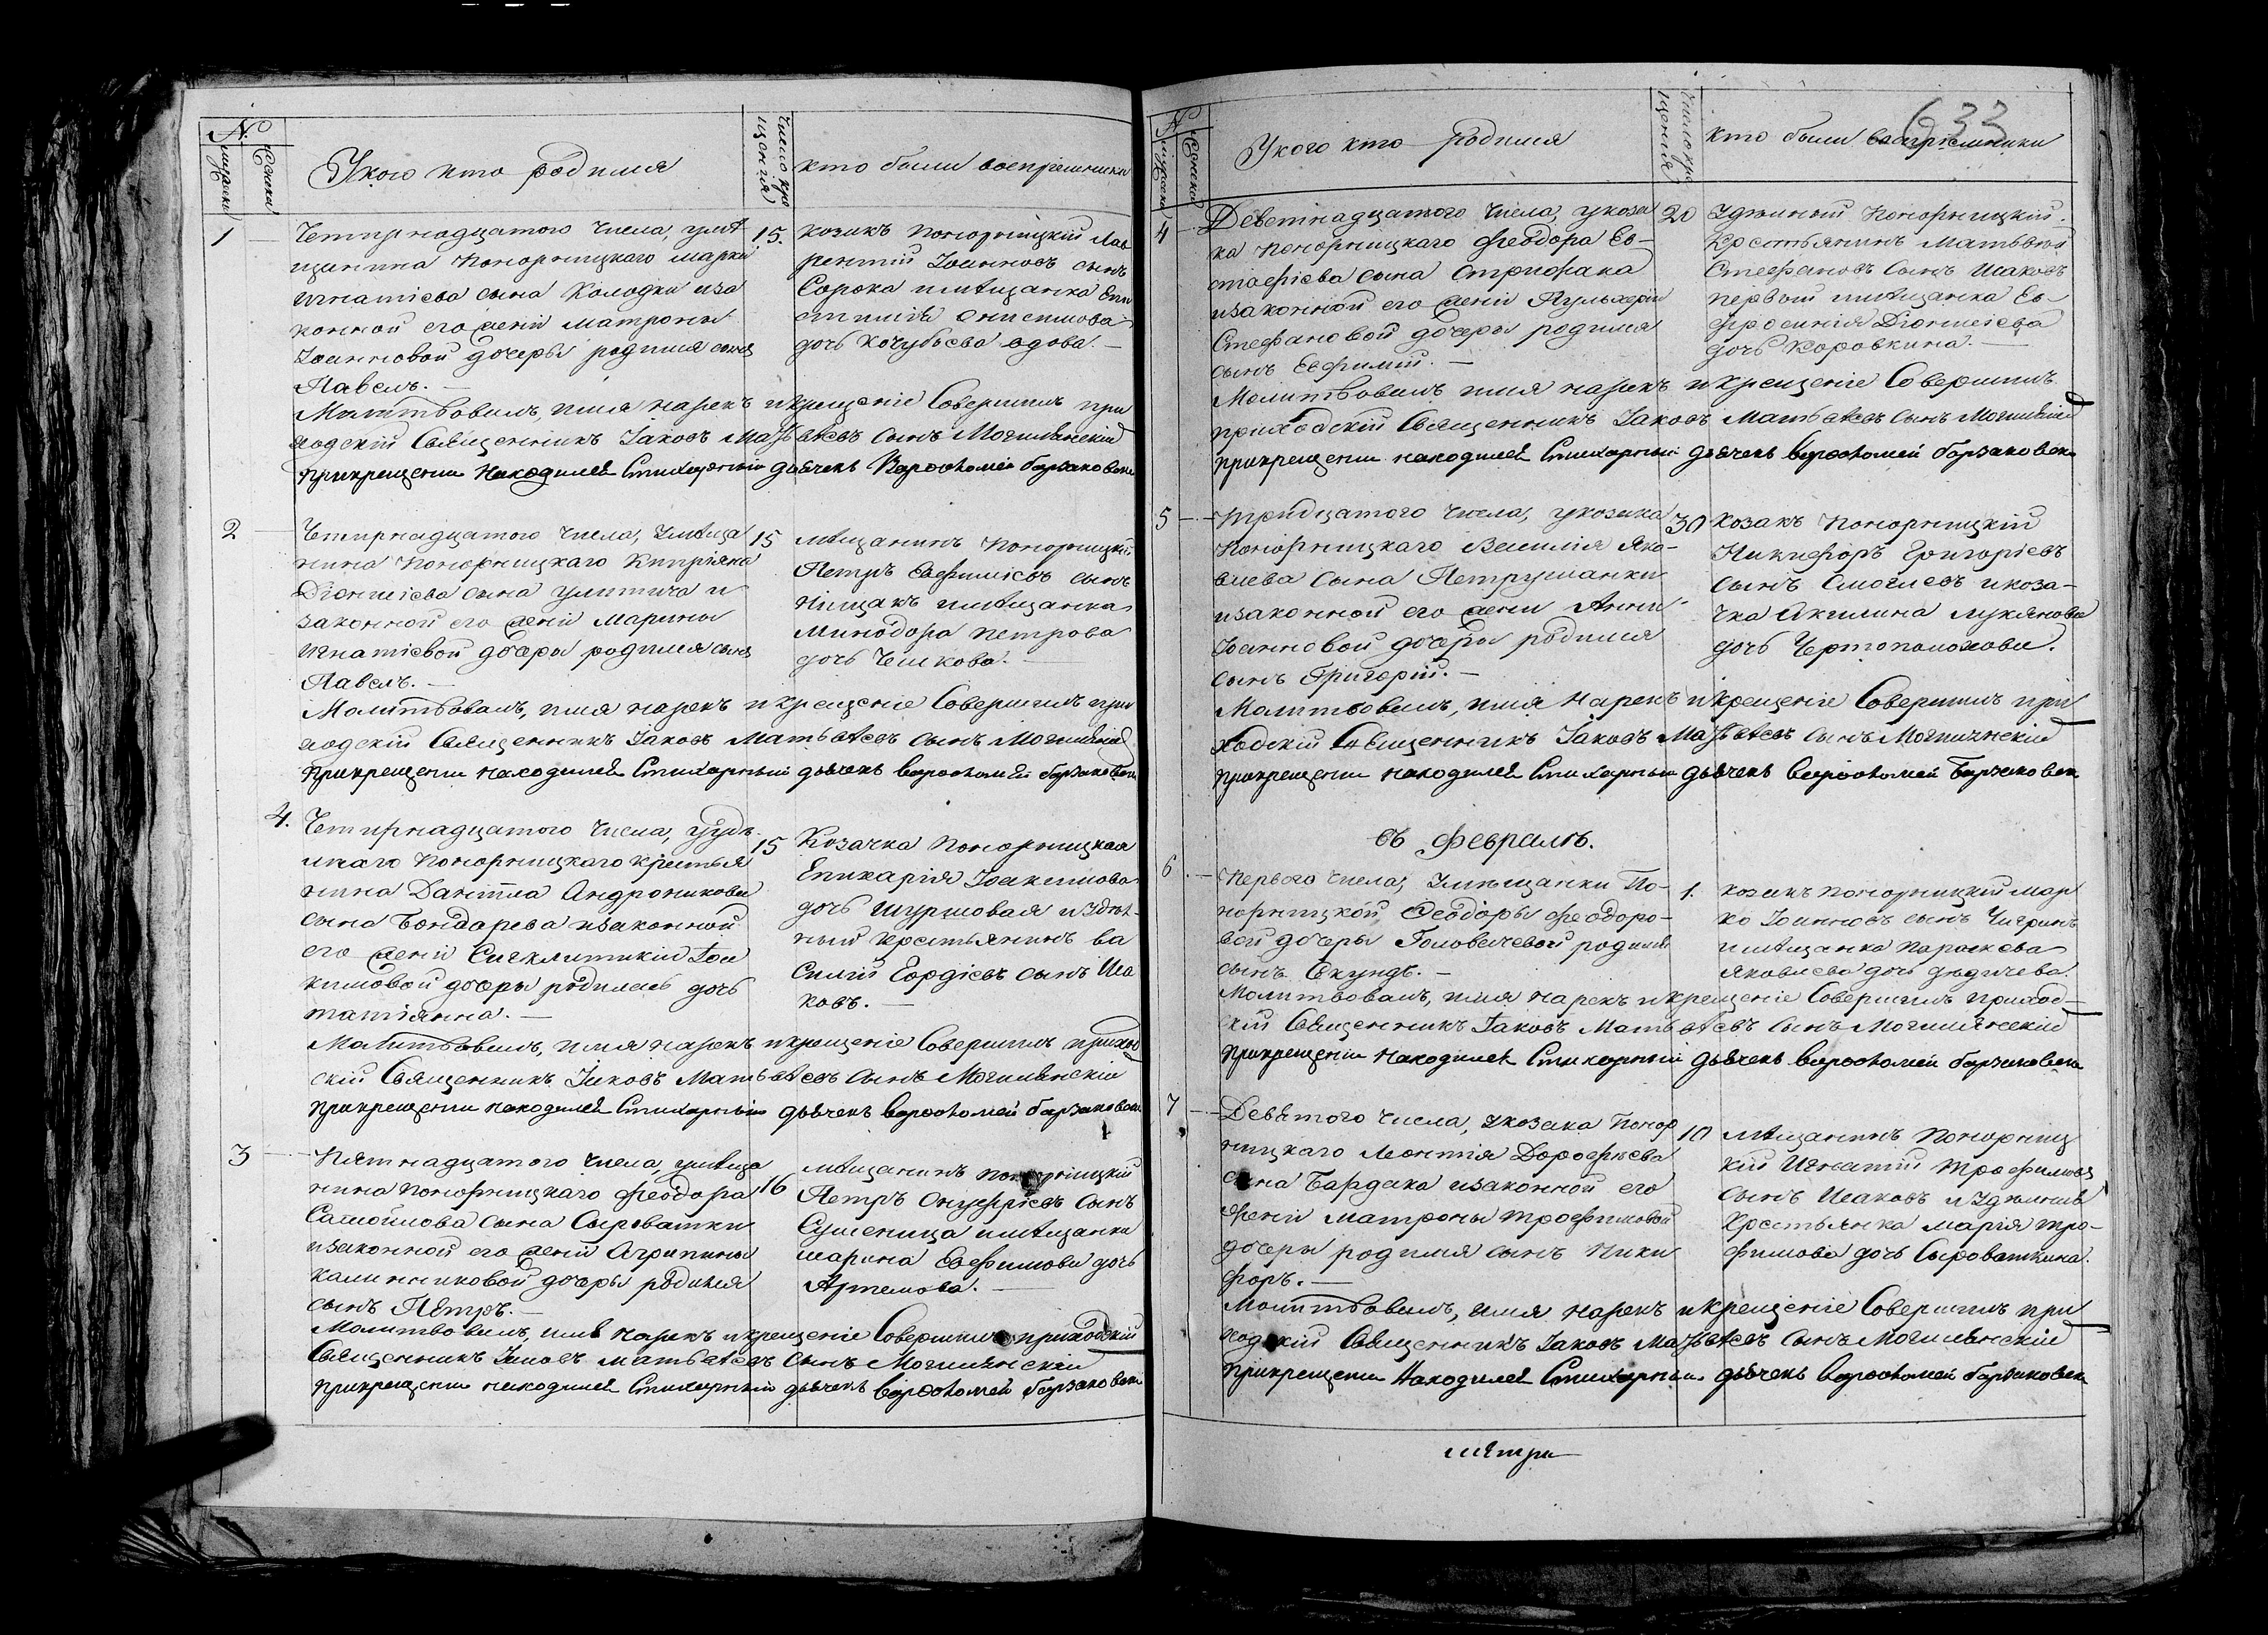 №
мужска
женска
У кого кто родился
число кре
щенія
кто были воспріемники
1
Четирнадцатого числа, умѣ
щанина Понорницкаго Марка
Игнатіева сына Колодки иза
конной его жени Матроны
Іоанновой дочеры родился сынъ
Павелъ. —
15.
козакъ Понорницкій Лав
рентій Іоанновъ сынъ
Сорока имѣщанка Епи
стимія Онисимова
дочь Кочубѣева вдова. —
Молитвовалъ, имя нарекъ икрещеніе Совершилъ при
ходскій Священникъ Іаковъ Матьвѣевъ сынъ Могилянскій
Прикрещеніи находился Стихарный дьячекъ Варѳоломей Барзаковскі
2
Четирнадцатого числа, Умѣща
нина Понорницкаго Кипріяна
Діонисіева сына Улитича и
законной его жени Марины
Игнатіевой дочеры родился сынъ
Павелъ. —
15
мѣщанинъ Понорницкій
Петръ Евфиміевъ сынъ
Піщакъ имѣщанка
Минодора Петрова
дочь Чешкова. —
Молитвовалъ, имя нарекъ икрещеніе Совершилъ при
ходскій Священникъ Іаковъ Матьвѣевъ сынъ Могилянскій
Прикрещеніи находился Стихарный дьячекъ Варѳоломей Барзаковскі
4.
Четирнадцатого числа, уудѣ
лнаго Понорницкаго крестья
нина Даніила Андроникова
сына Бондарева изаконной
его жени Сигклитикіи Іоа
кимовой дочеры родилась дочь
татіянна. —
15
Козачка Понорницкая
Епихарія Іоакимова
дочь Шуршовая иудѣл-
ный крестьянинъ Ва
силій Гордіевъ сынъ Иса
ковъ. —
Молитвовалъ, имя нарекъ икрещеніе Совершилъ приход
скій Священникъ Іаковъ Матьвѣевъ сынъ Могилянскій
Прикрещеніи находился Стихарный дьячекъ Варѳоломей Барзаковскі
3
Пятнадцатого числа, умѣща
нина Понорницкаго Феодора
Самойлова сына Сыроватки
изаконной его жени Агрипины
Калинниковой дочеры родился
сынъ Петръ. —
16
мѣщанинъ Понорницкій
Петръ Онуфріевъ сынъ
Сушеница имѣщанка
Марина Евфимова дочь
Артемова. —
Молитвовалъ, имя нарекъ икрещеніе Совершилъ приходскій
Священникъ Іаковъ Матьвѣевъ сынъ Могилянскій
Прикрещеніи находился Стихарный дьячекъ Варѳоломей Барзаковскі
633
№
мужска
женска
У кого кто родился
число кре
щенія
кто были воспріемники
4
Деветнадцатого числа, укоза
ка Понорницкаго Феодора Ев-
стафіева сына Стрифака
изаконной его жени Пульхеріи
Стефановой дочеры родился
сынъ Евфимій. —
20
Удѣлный Понорницкій
Крестьянинъ Матьвѣй
Стефановъ сынъ Исаковъ
первой имѣщанка Ев-
фросинія Діонисіева
дочь Коровкина. —
Молитвовалъ имя нарекъ икрещеніе Совершилъ
приходскій Священникъ Іаковъ Матьвѣевъ сынъ Могилянскій
Прикрещеніи находился Стихарный дьячекъ Варѳоломей Барзаковскі
5
Тридцатого числа, укозака
Понорницкаго Василія Яко-
влева сына Петрушанки
изаконной его жени Анны
Іоанновой дочеры родился
сынъ Григорій. —
30
Козакъ Понорницкій
Никифоръ Григоріевъ
сынъ Смоглевъ икоза-
чка Акилина Лукянова
дочь Чертополохова.
Молитвовалъ, имя нарекъ икрещеніе Совершилъ при
ходскій Священникъ Іаковъ Матьвѣевъ сынъ Могилянскій
Прикрещеніи находился Стихарный дьячекъ Варѳоломей Барзаковскі
въ Февралѣ.
6
Первого числа, Умѣщанки По-
норницкой Феодоры Феодоро-
вой дочеры Головачевой родился
сынъ Секундъ. —
1.
козакъ Понорницкій Мар
ко Іоанновъ сынъ Чигринъ
имѣщанка Параскева
Яковлева дочь Дядичева.
Молитвовалъ, имя нарекъ икрещеніе Совершилъ приход-
скій Священникъ Іаковъ Матьвѣевъ сынъ Могилянскій
Прикрещеніи находился Стихарный дьячекъ Варѳоломей Барзаковскі
7
Девятого числа, Укозака Понор
ницкаго Леонтія Дорофеева
сына Бардака изаконной его
жени Матроны Трофимовой
дочеры родился сынъ Ники
форъ. —
10
мѣщанинъ Понорниц
кій Игнатій Трофимовъ
сынъ Исаковъ иУдѣлная
Крестьянка Марія Тро-
фимова дочь Сыроваткина.
Молитвовалъ, имя нарекъ икрещеніе Совершилъ при
ходскій Священникъ Іаковъ Матьвѣевъ сынъ Могилянскій
Прикрещеніи находился Стихарный дьячекъ Варѳоломей Барзаковскі